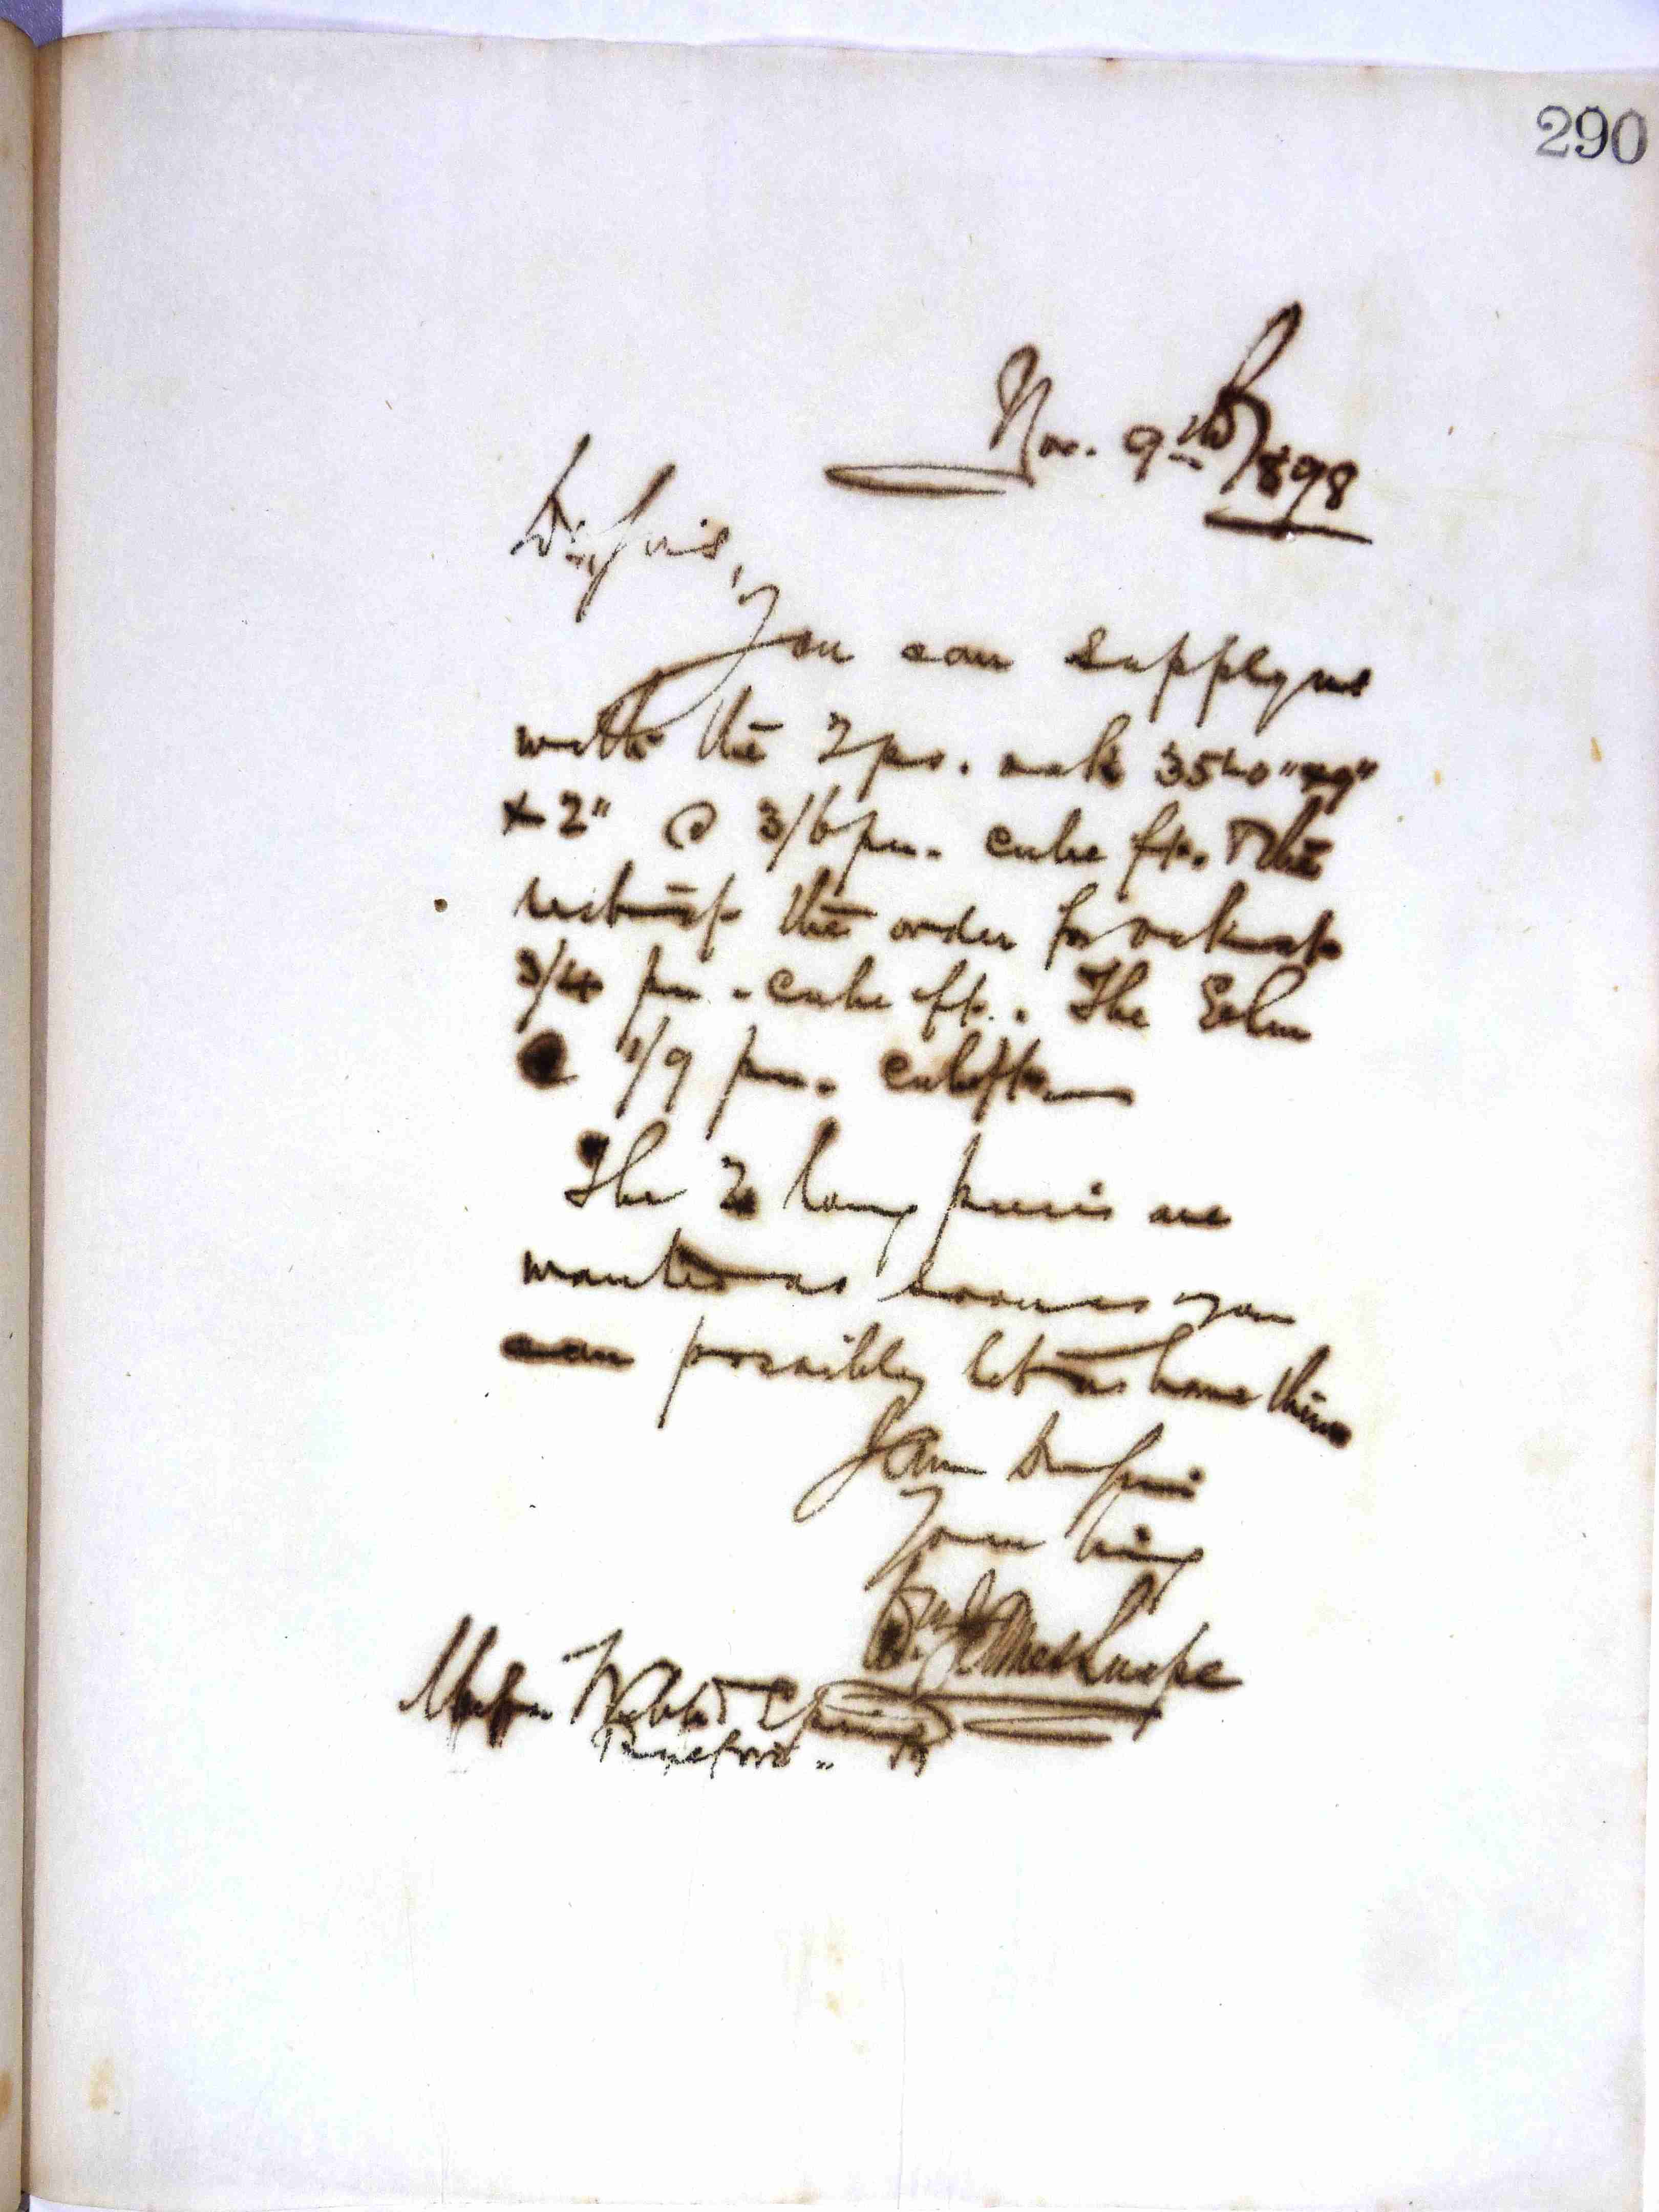 290
Nov. 9th 1898
Dr Sirs,
You can supply us
with the 2 ps. oak 35'-0" x 9"
x 2" @ 3/6 per. cube ft. & the
rest of the order for oak at
3/4 per. cube ft. The Elm
@ 1/9 per. cube ft.
The 2 long pieces are
wanted as soon as you
can possibly let us have them
I am Dr Sirs
Yours truly
Messrs. Webb &